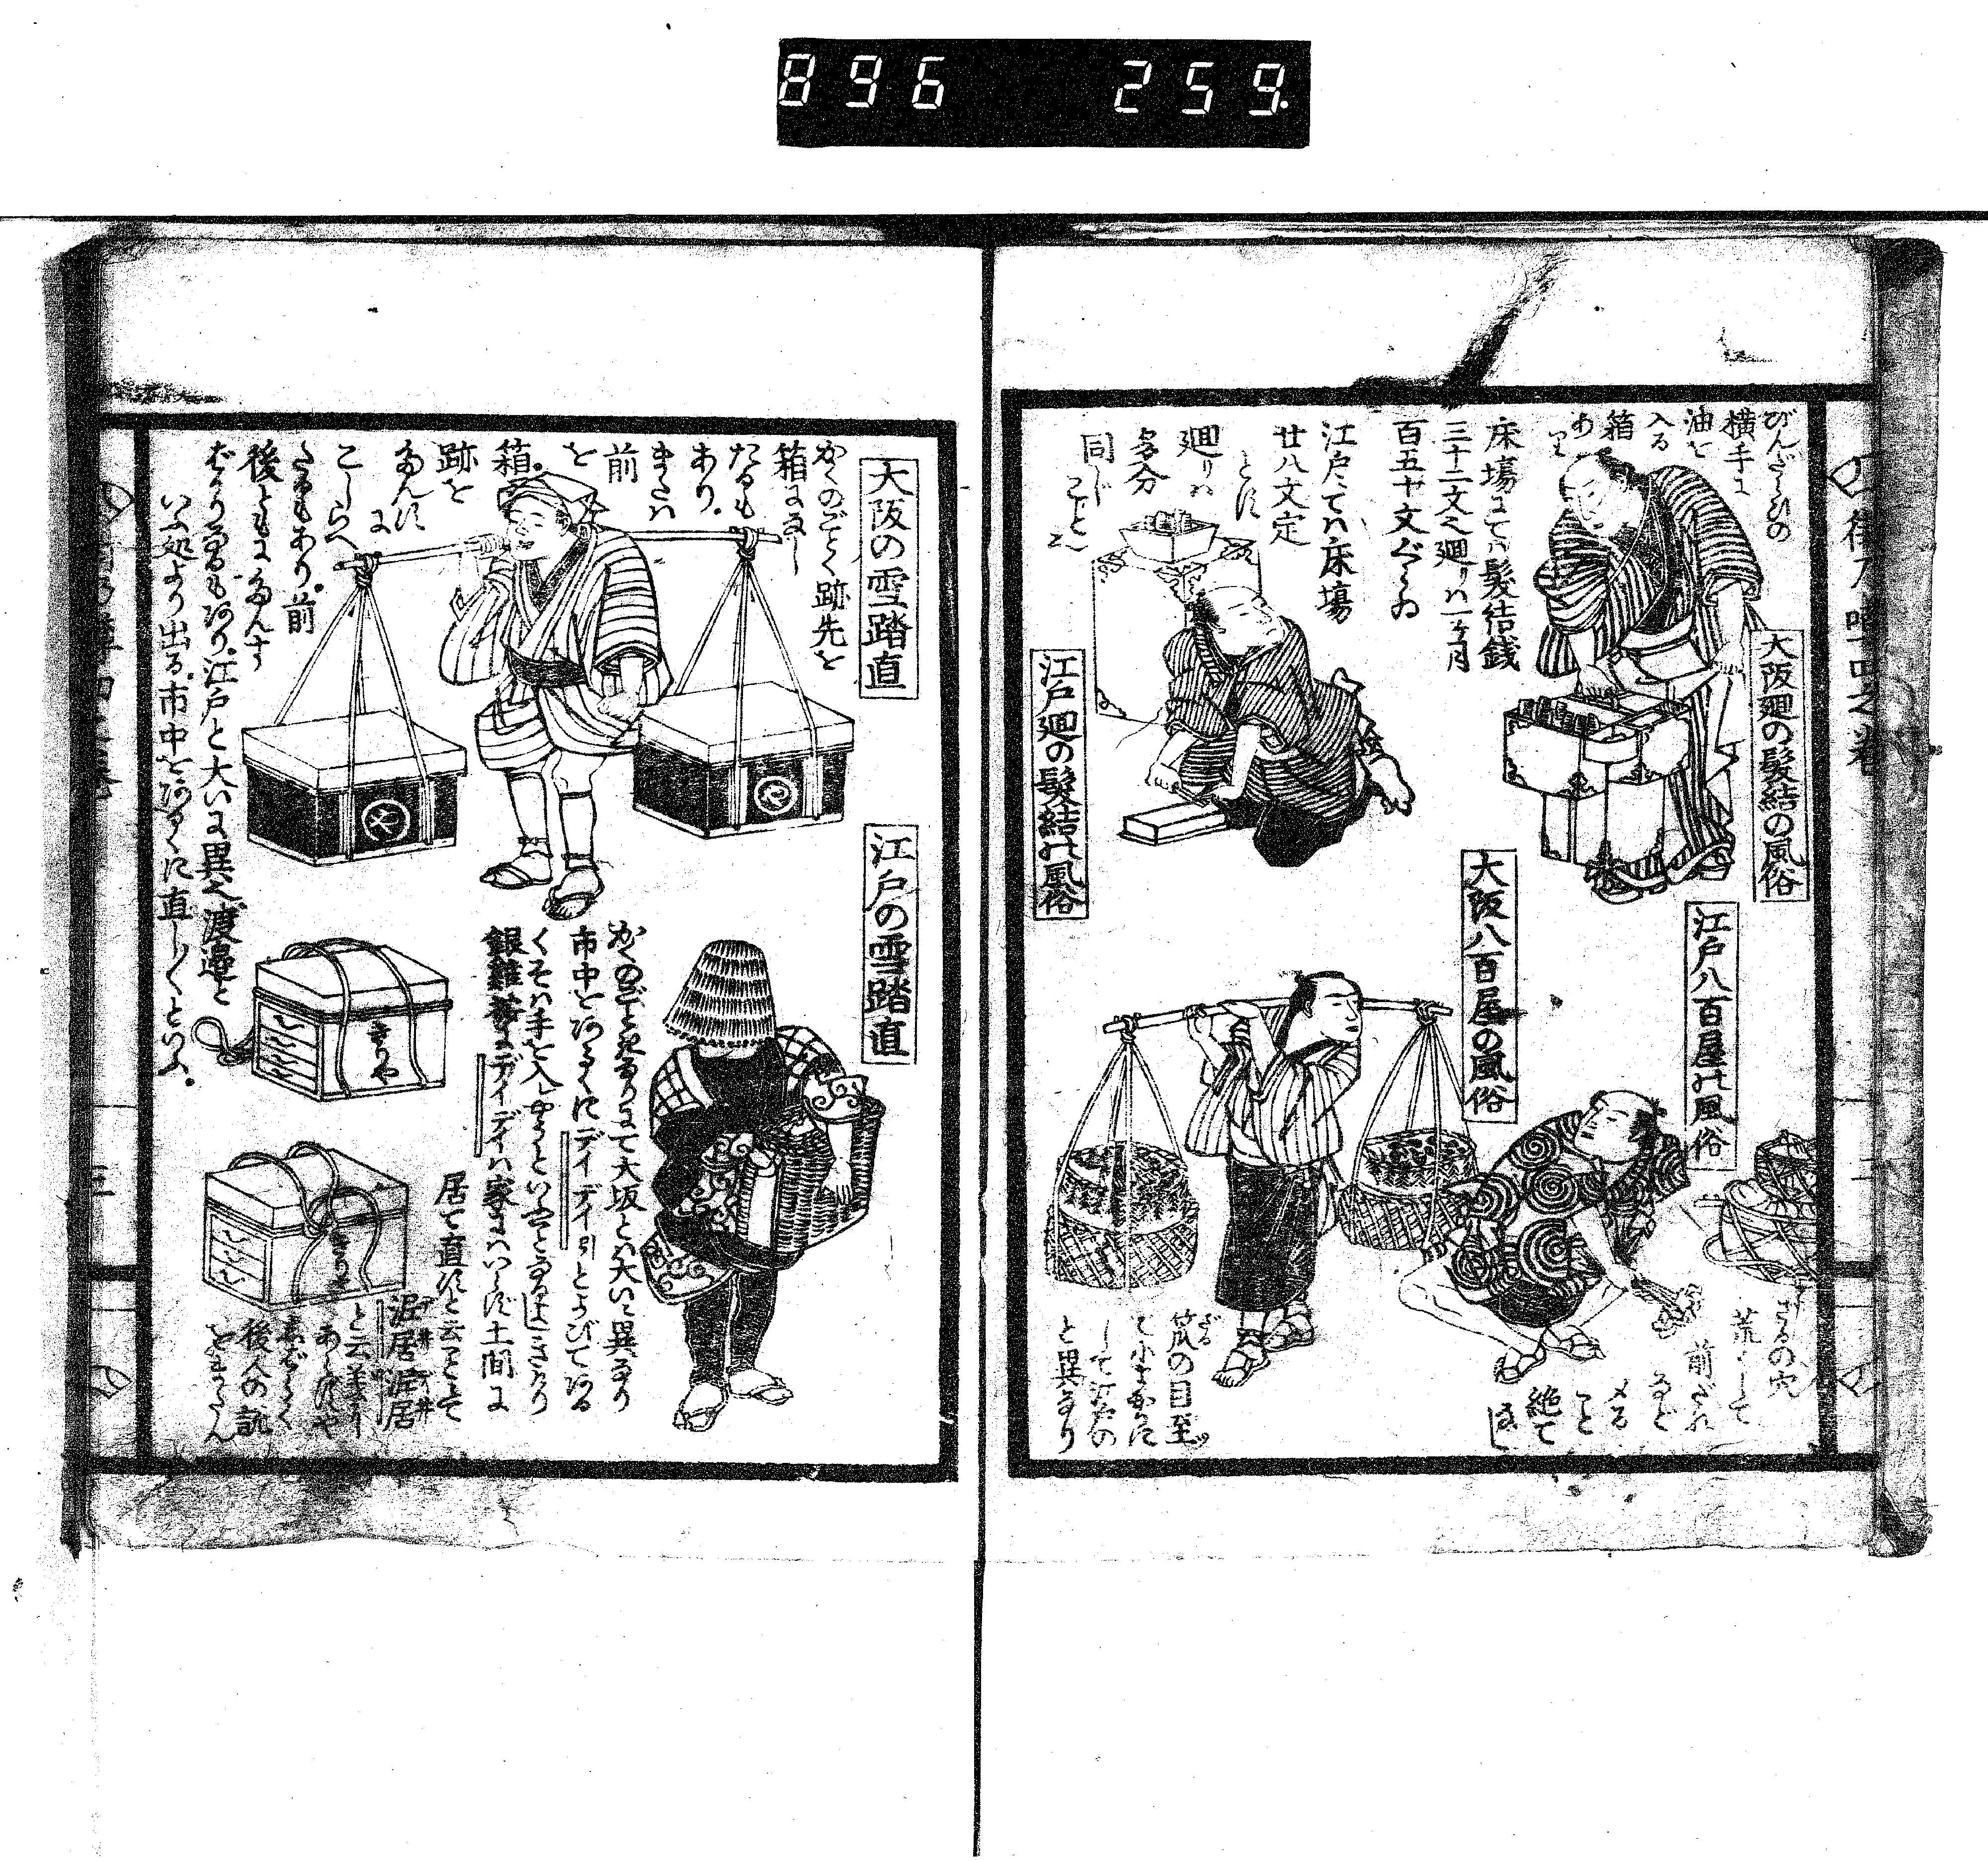 896 259
大阪廻の髪結の風俗
びんだらひの
横手に
油を
入る
箱
あり
床場にては髪結銭
三十二文之廻りハ一ヶ月
百五十文ぐらゐ
江戸にてハ床場
廿八文定
とす
廻りハ
多分
同じ
こと也
江戸廻の髪結の風俗
江戸八百屋の風俗
ざるの穴
荒くして
前だれ
など
メる
こと
絶て
なし
大阪八百屋の風俗
笊の目至ッ
て小まかに
して江戸の
と異なり
大阪の雪踏直
かくのごとく跡先を
箱になし
たるも
あり。
または
前
を
箱。
跡を
たんす
に
こしらへ
たるもあり。前
後ともにたんす
ばかりなるもあり。江戸と大いに異之渡邉と
いふ処より出る。市中をあるくに直し〱といふ。
江戸の雪踏直
かくのごとき形りにて大坂とハ大いに異なり
市中をあるくにデイデイ引とよびてある
くそハ手を入やうといふことなるよしきけり
デイデイハ家にハいらず土間に
居て直すと云ことにて
泥居泥居
と云義なり
あらずや
しばらく
後人の訛
をまたん
きりや
や